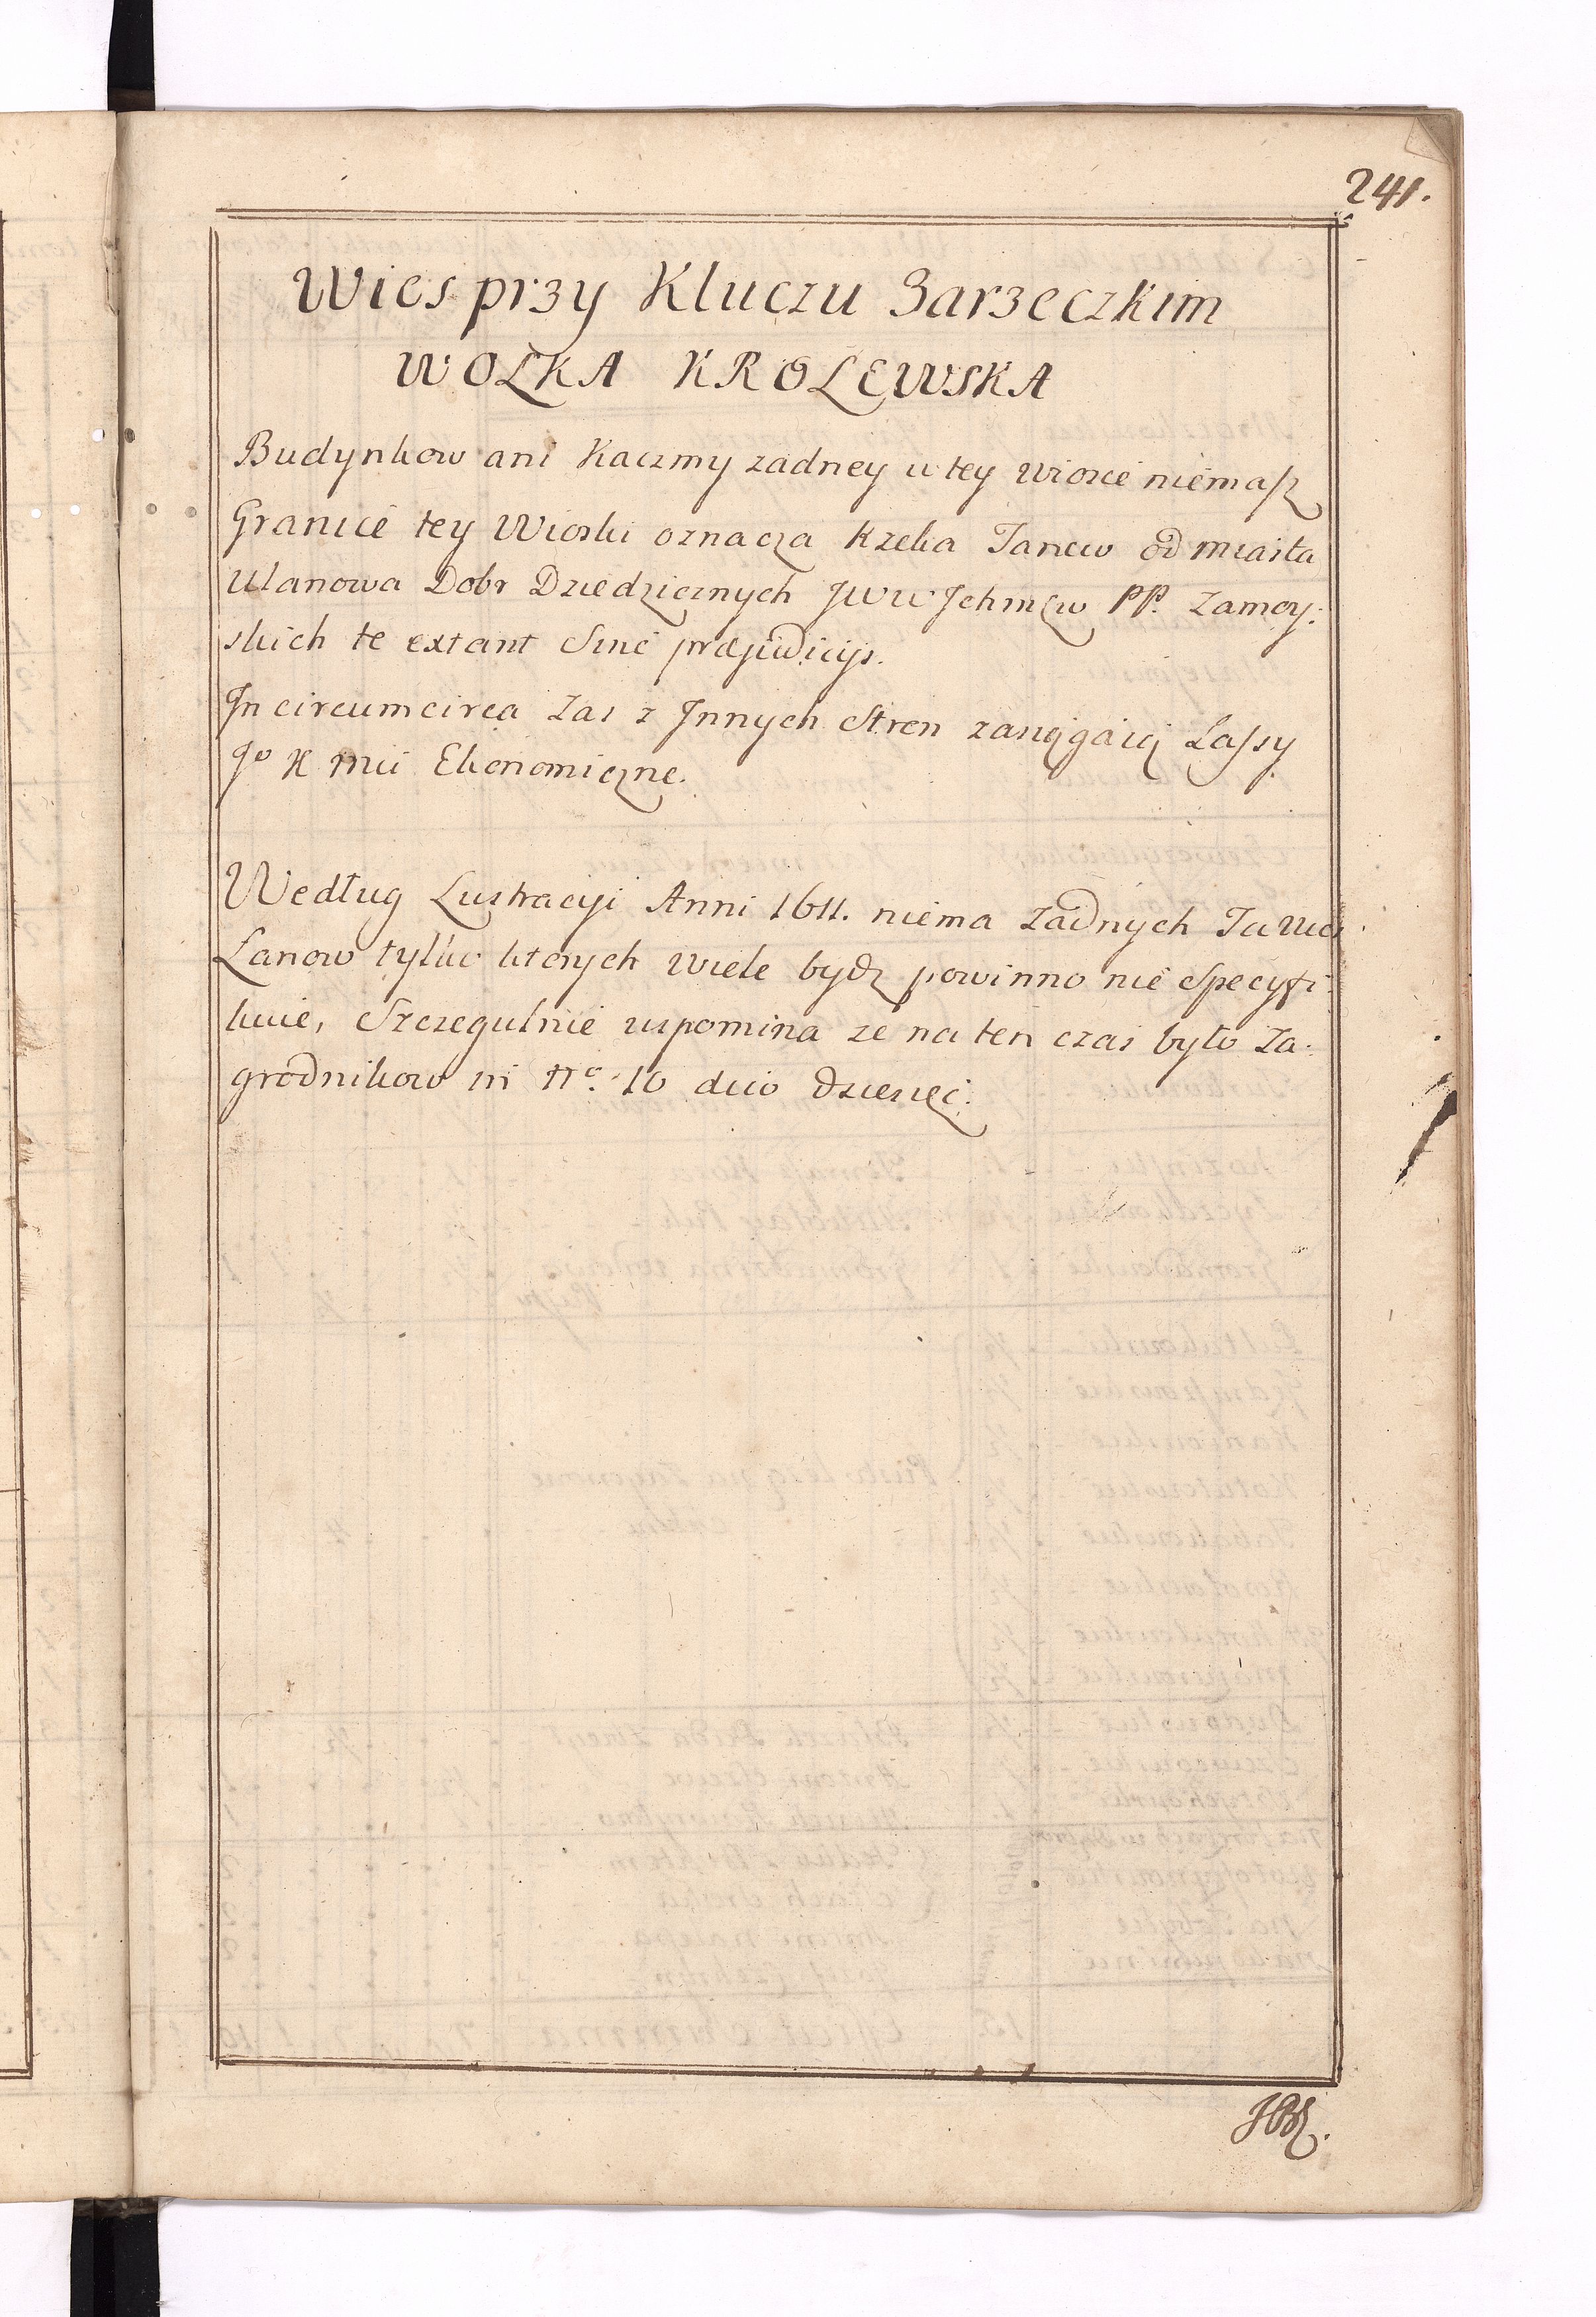 241.
Wies przy Kluczu Zarzeczkim
WOLKA KROLEWSKA
Budynkow ani Kaczmy zadney w tey wiosce niemasz
Granice tey Wioski oznacza Rzeka Tanew od miasta
Ulanowa Dobr Dziedzicznych JWW Jchmcw PP. Zamoy:
skich te extant Sine præjudicijs.
In circumcirca Zas z Jnnych Stron zasięgaią Lassy
Jo K Mci Ekonomiczne.
Według Lustracyi Anni 1611. niema Zadnych
Lanow tylko ktorych wiele bydz powinno nie Specyfi:
kuie, Szczegulnie wspomina ze na ten czas było Za:
grodnikow in No. 10 dico dziesięć.